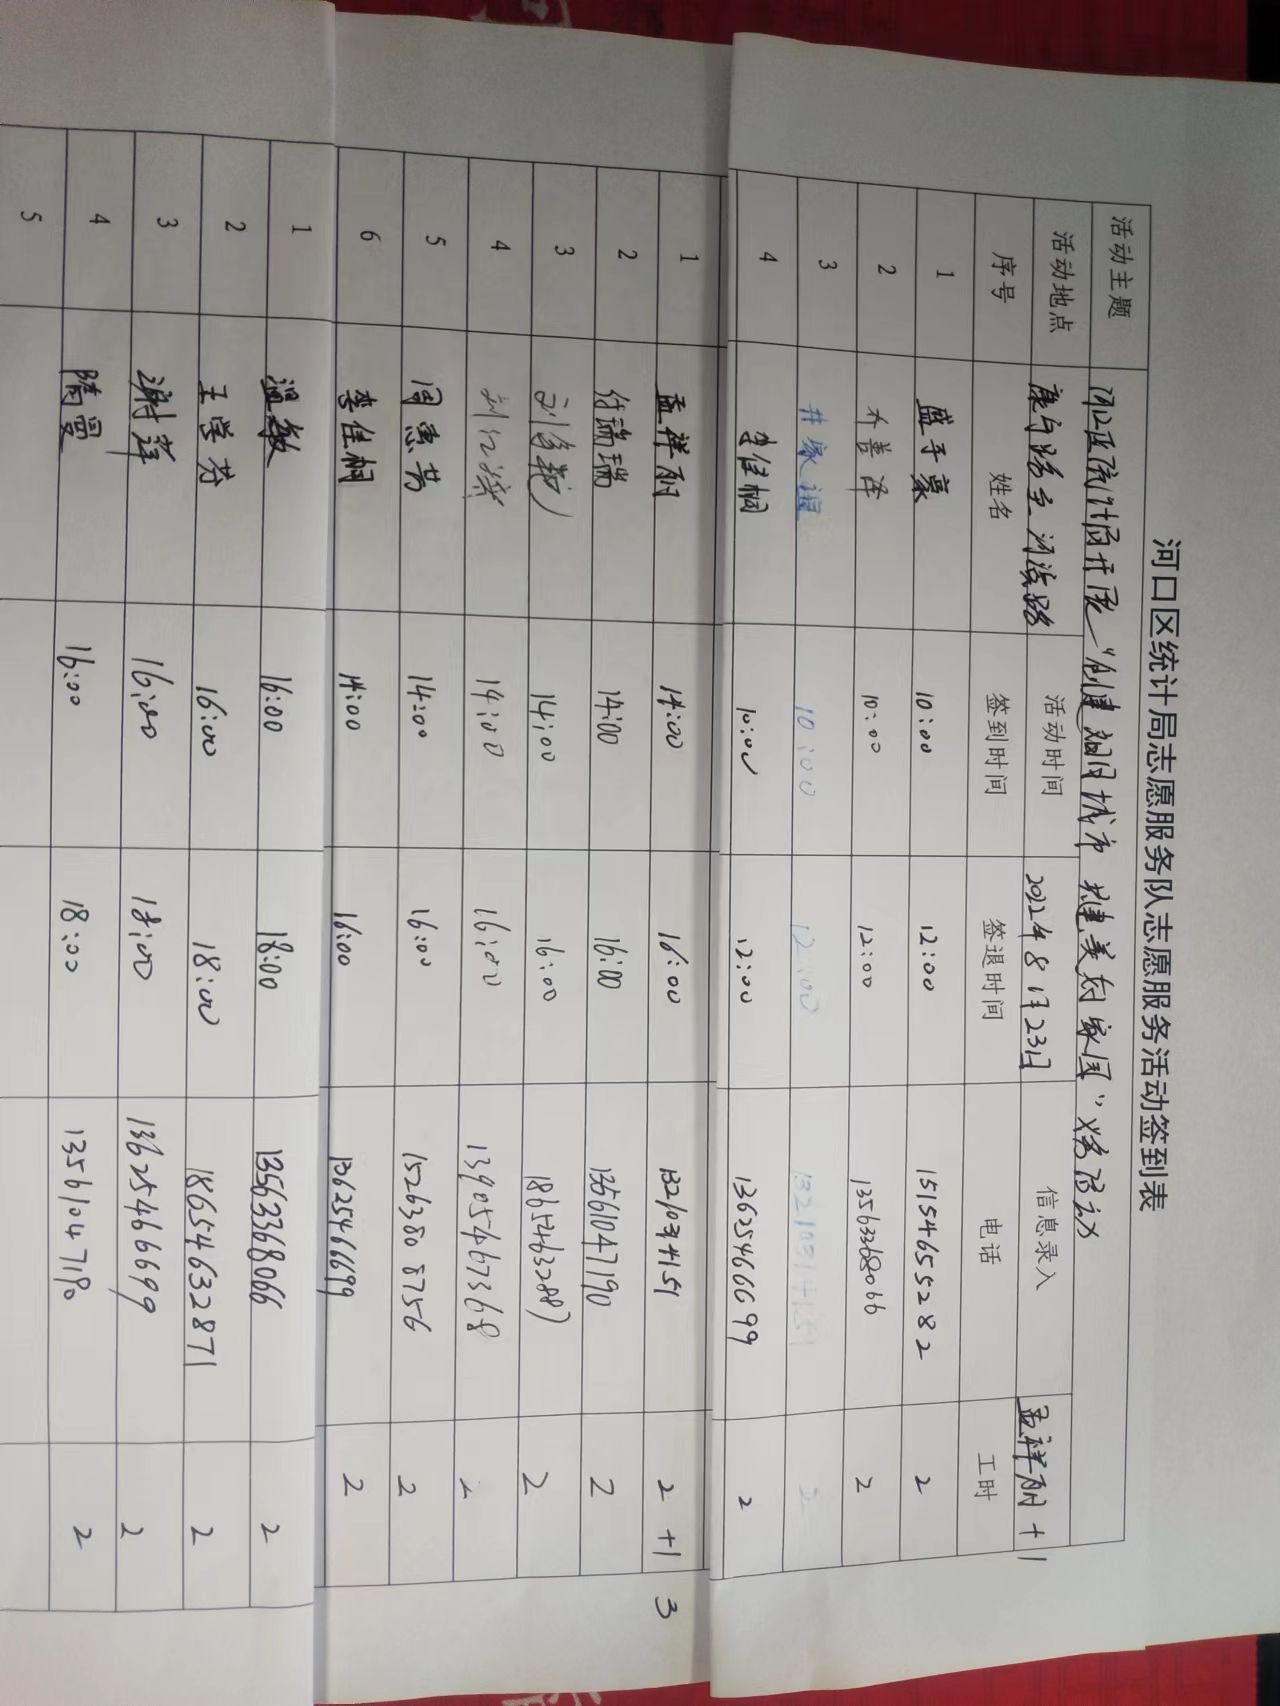 河口区统计局志愿服务队志愿服务活动签到表
活动主题 河口区统计局开展“创建文明城市 共建美好家园”义务活动
活动地点 康宁路至河滨路 活动时间 2022年8月23日 信息录入 孟祥丽 +1
序号 姓名 签到时间 签退时间 电话 工时
1 盛子豪 10:00 12:00 15154655282 2
2 乔善泽 10:00 12:00 13563368066 2
3 井家谊 10:00 12:00 13210314151 2
4 李佳桐 10:00 12:00 13625466699 2
1 孟祥丽 14:00 16:00 13210314151 2 +1 3
2 付瑞瑞 14:00 16:00 13561047190 2
3 14:00 16:00 2
4 刘江滨 14:00 16:00 13905467368 2
5 周惠芳 14:00 16:00 15263808756 2
6 李佳桐 14:00 16:00 13625466699 2
1 温敏 16:00 18:00 13563368066 2
2 王学芬 16:00 18:00 18654632871 2
3 谢萍 16:00 18:00 13625466699 2
4 隋曼 16:00 18:00 13561047190 2
5